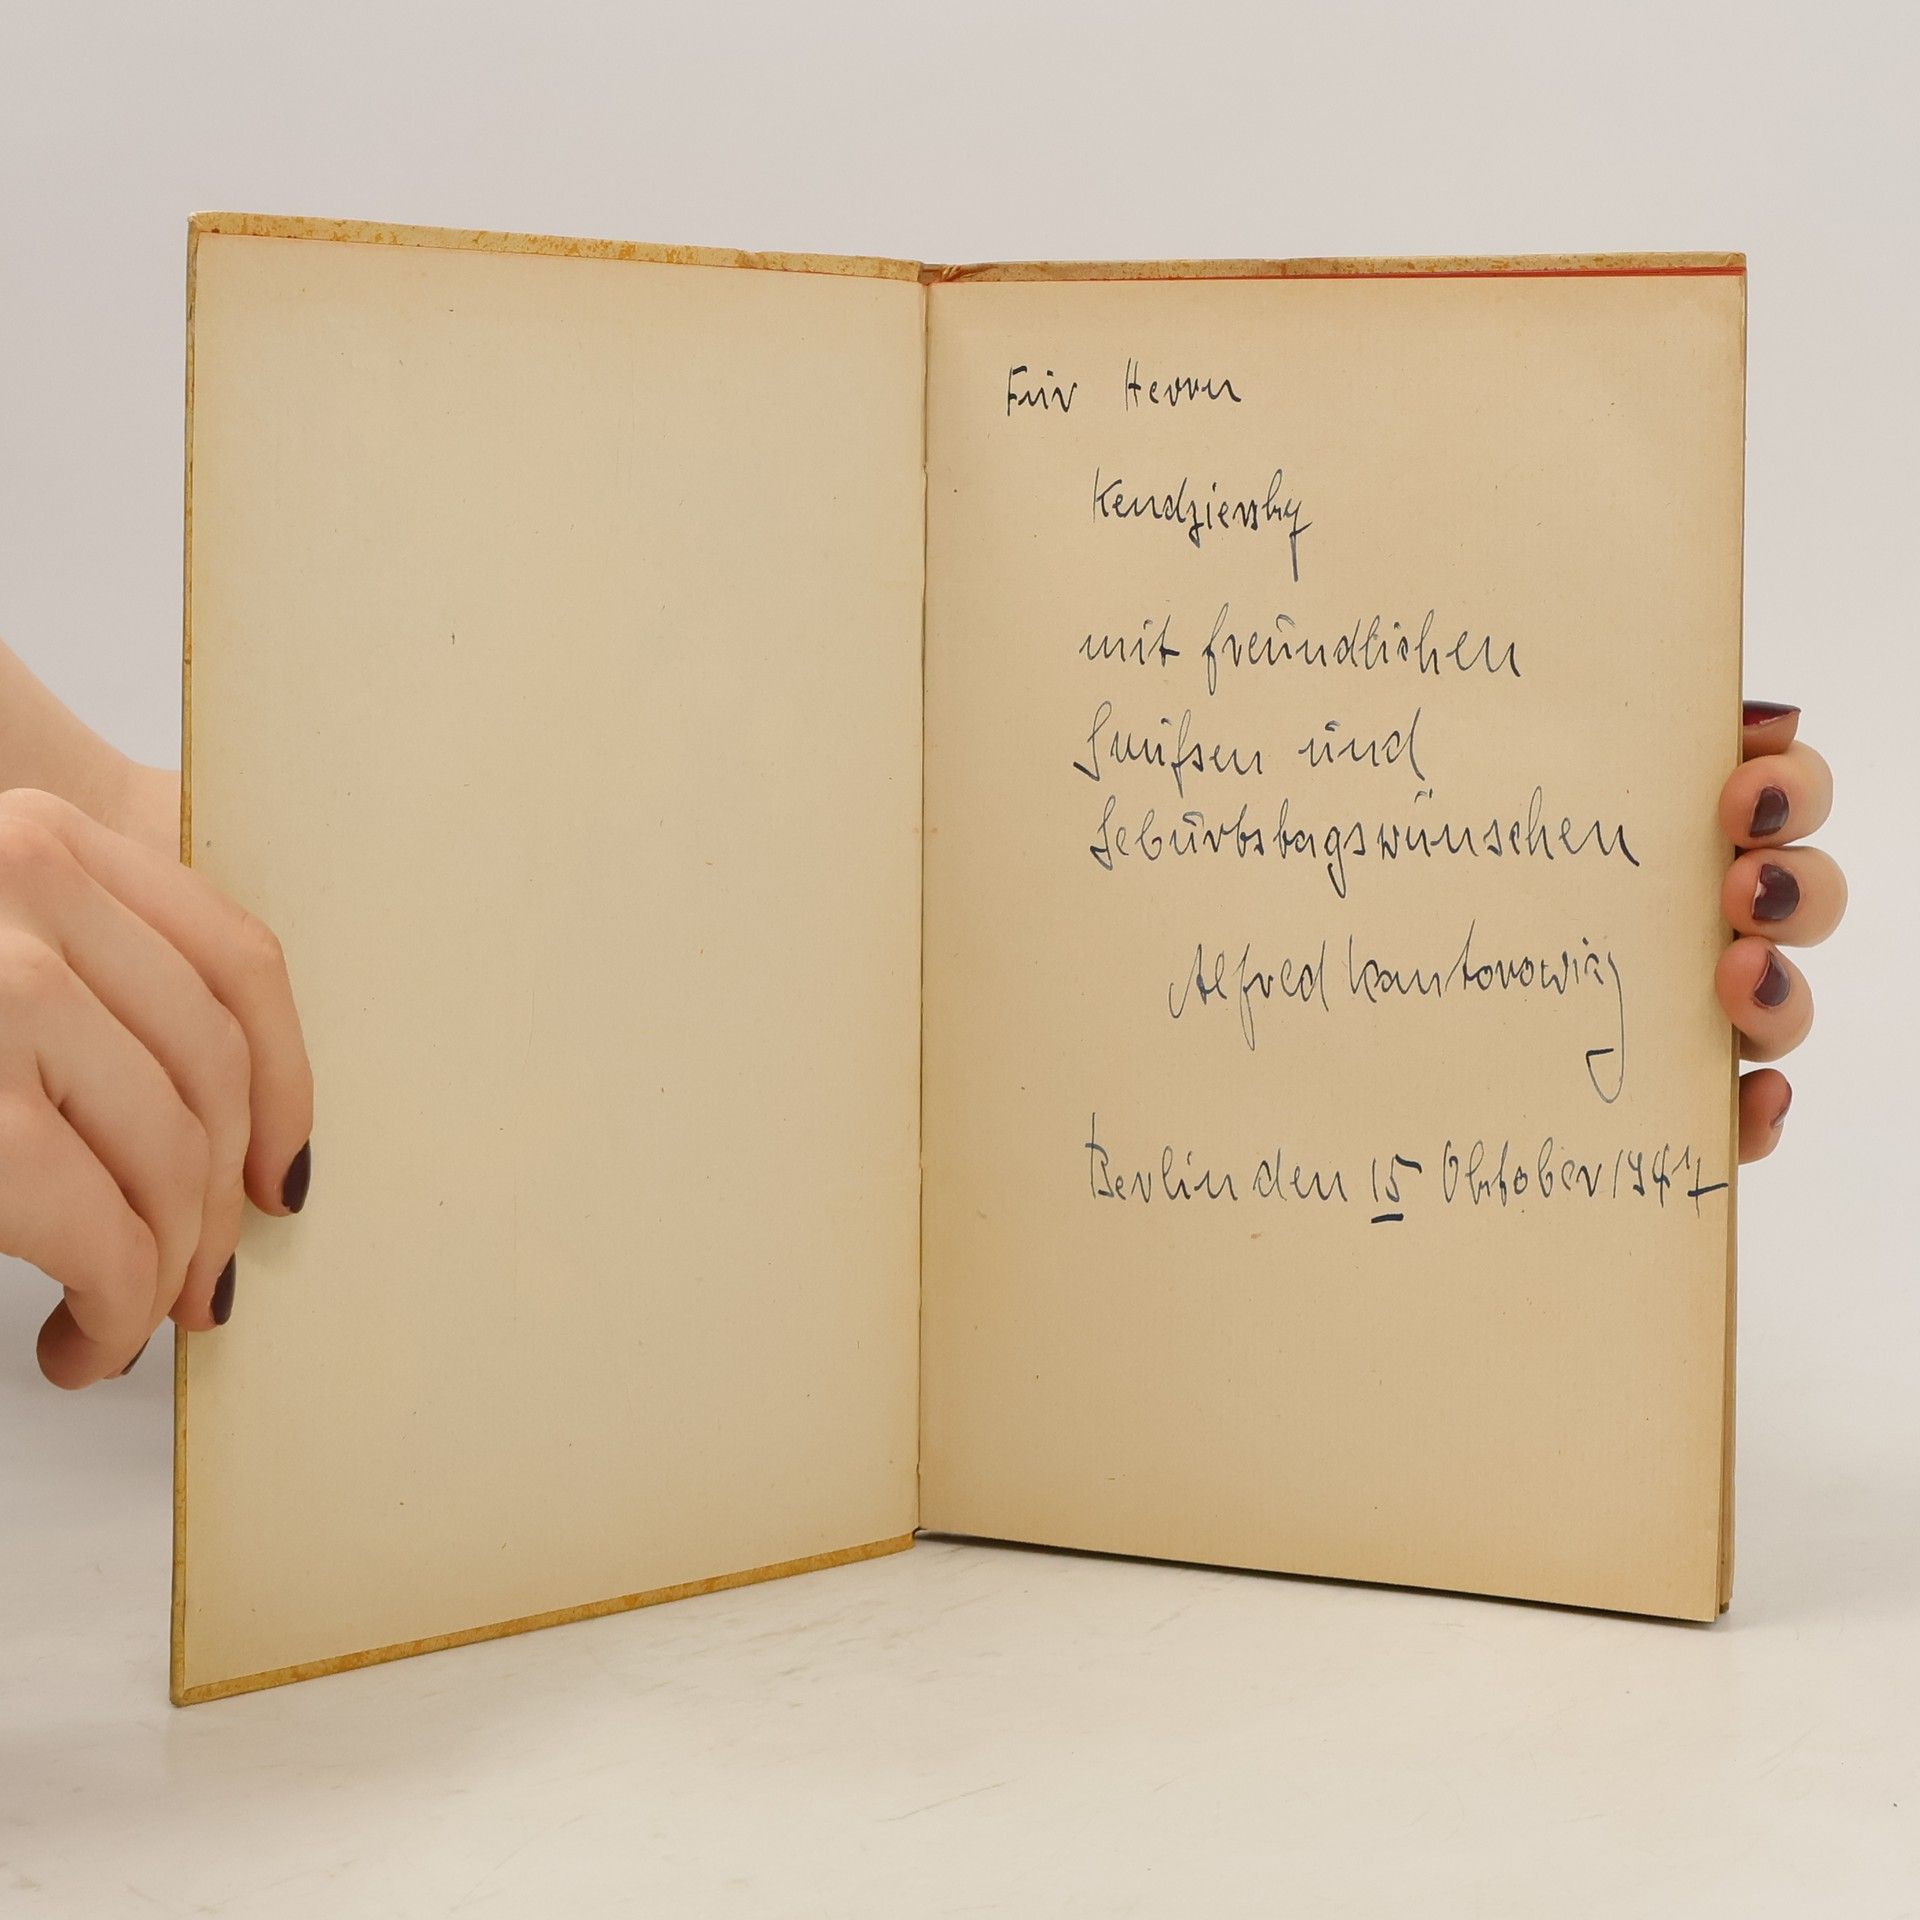 Für Herrn
Kendziersky
mit freundlichen
Grüßen und
Geburtstagswünschen
Alfred Kantorowicz
Berlin den 15 Oktober 1947